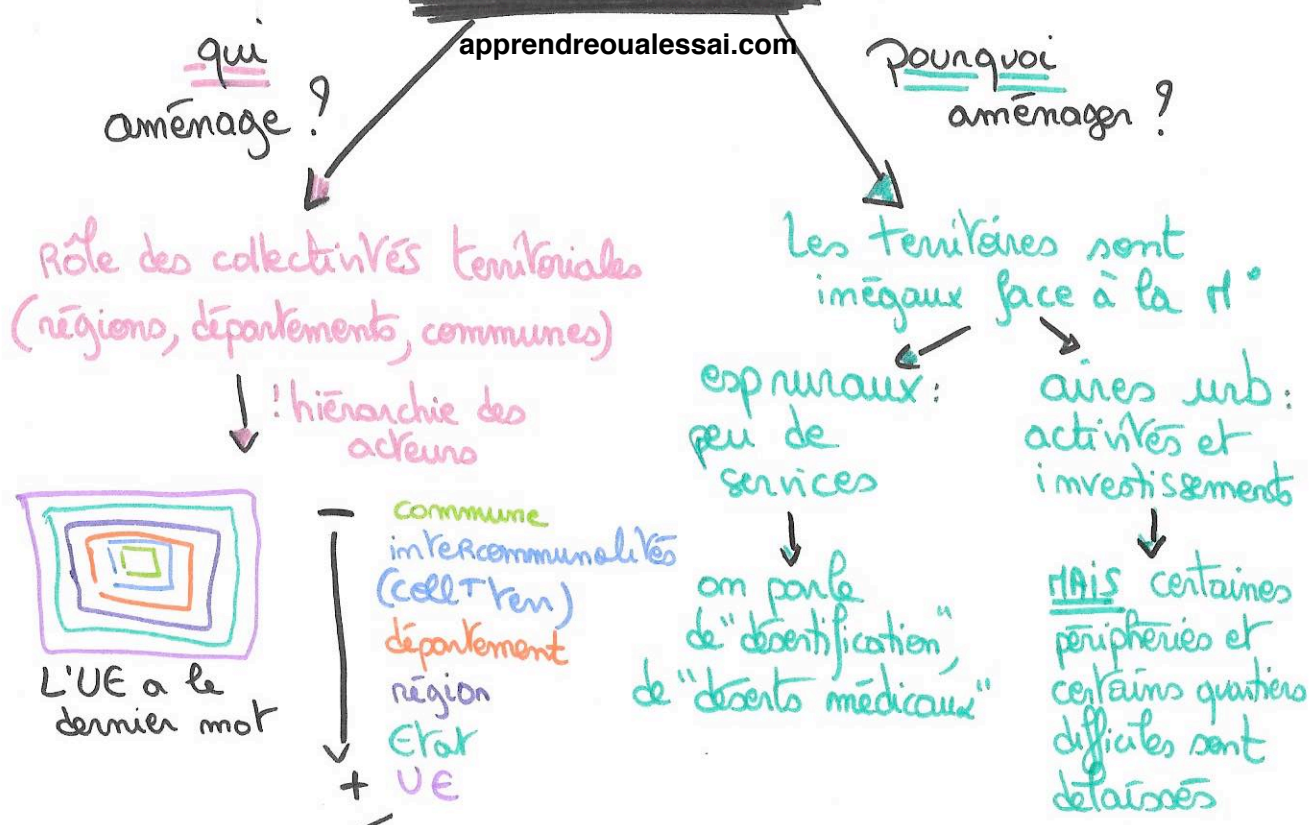 apprendreoualessai.com
qui
aménage ?
Pourquoi
aménager ?
Rôle des collectivités territoriales
(régions, départements, communes)
! hiérarchie des
acteurs
L'UE a le
dernier mot
-
commune
intercommunalités
(Coll T Terr)
département
région
Etat
+ UE
Les territoires sont
inégaux face à la M°
esp ruraux :
peu de
services
on parle
de "désertification",
de "déserts médicaux"
aires urb :
activités et
investissements
MAIS certaines
périphéries et
certains quartiers
difficiles sont
délaissés